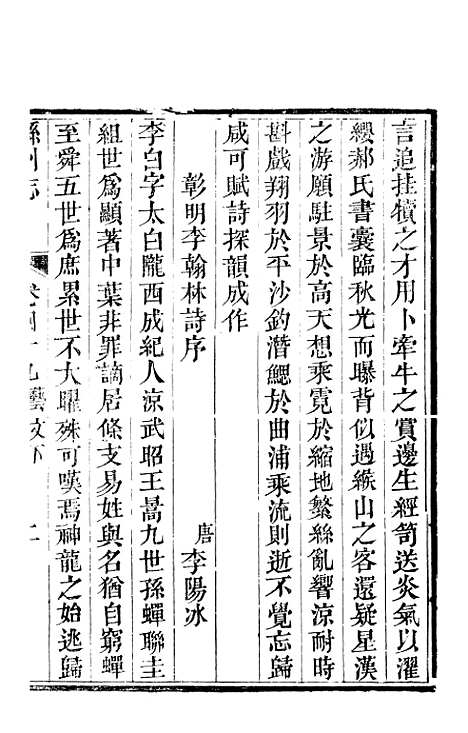 言追挂犢之才用卜牽牛之賞邊生經笥送炎氣以濯
纓郝氏書囊臨秋光而曝背似遇緱山之客還疑星漢
之游願駐景於高天想乘霓於縮地繁絲亂響涼耐時
斟戲翔羽於平沙釣潛鰓於曲浦乘流則逝不覺忘歸
咸可賦詩探韻成作
彰明李翰林詩序
唐李陽冰
李白字太白隴西成紀人涼武昭王暠九世孫蟬聯圭
組世爲顯著中葉非罪謫居條支易姓與名猶自窮蟬
至舜五世爲庶累世不大曜殊可嘆焉神龍之始逃歸
緜州志
卷四十九藝文下
二